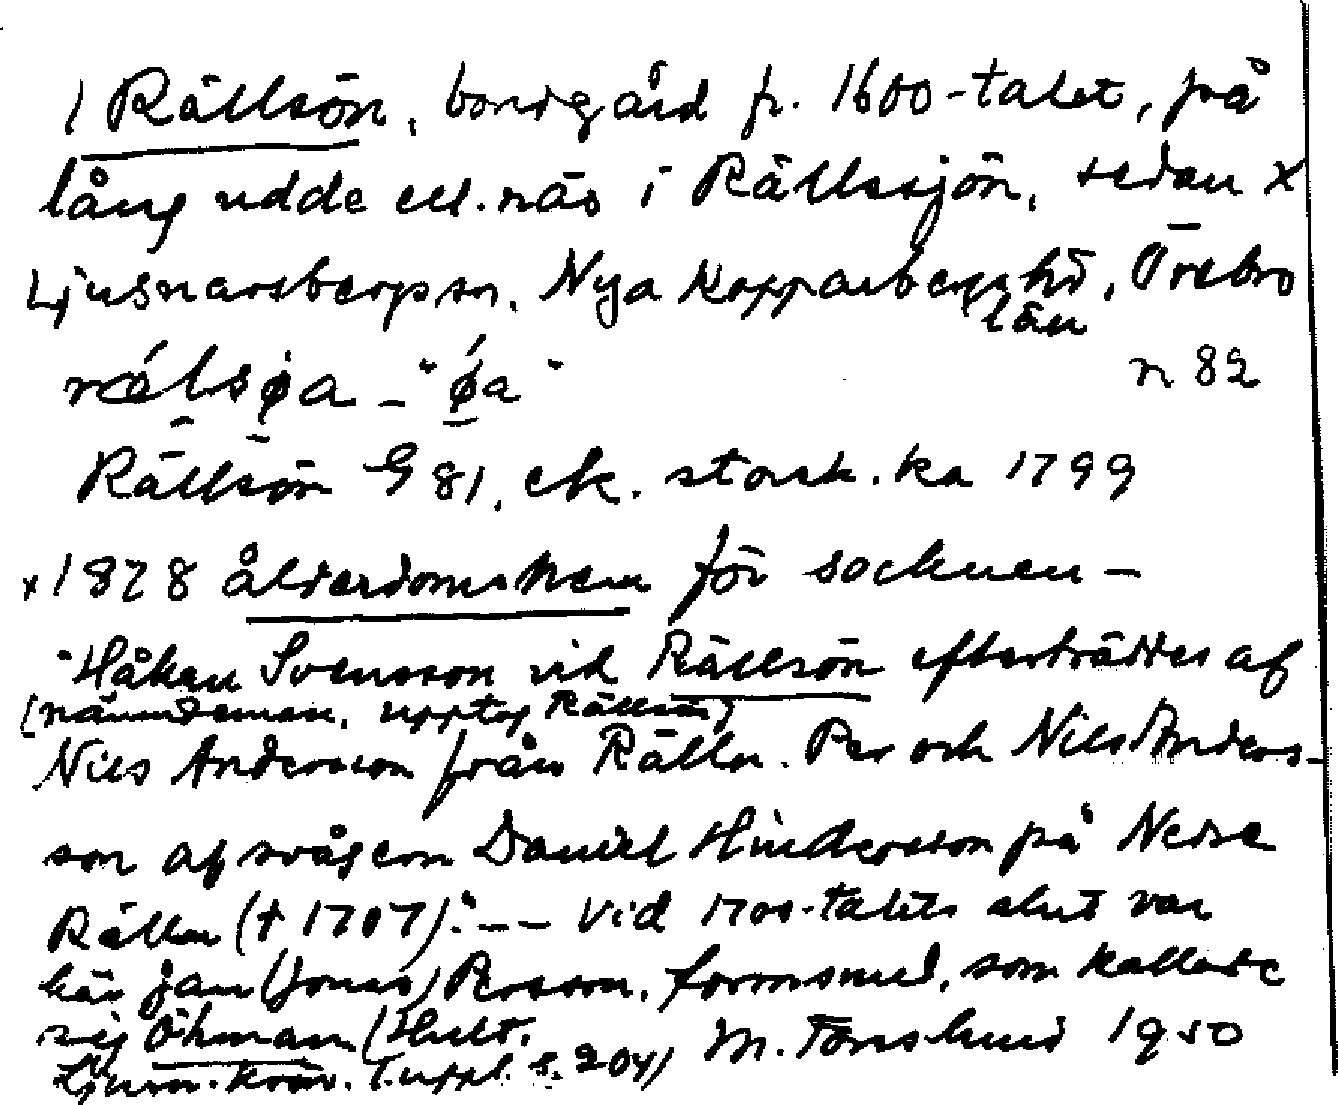 1 Rällsön, bondgård fr. 1600-talet, på
lång udde ell. näs i Rällssjön, sedan x
Ljusnarsbergs sn. Nya Kopparbergs hd, Örebro
län
rälsøa - "øa"
n 82
Rällsön G 81, ek. storsk. ka 1799
x 1878 ålderdomshem för socknen -
"Håkan Svensson vid Rällsön efterträddes af
(nämndeman, upptog Rällsön)
Nils Andersson från Rällen. Per och Nils Anders-
son af svågern Daniel Hindersson på Nedre
Rällen († 1707)." --- Vid 1700-talets slut var
här Jan (Jonas) Persson, formsmed, som kallade
sig Öhman (Hult,
Ljusn. krön. 1. uppl. s. 204) M. Törnslund 1950